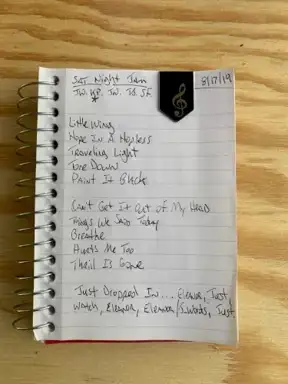 Sat Night Jam 8/17/19
JW. KB. JW. JB. SF.
*
Little Wing
Hope In A Hopeless
Traveling Light
Tore Down
Paint It Black
Can't Get It Out Of My Head
Things We Said Today
Breathe
Hurts Me Too
Thrill Is Gone
Just Dropped In... Eleanor, Just,
Watch, Eleanor, Eleanor/Swords, Just